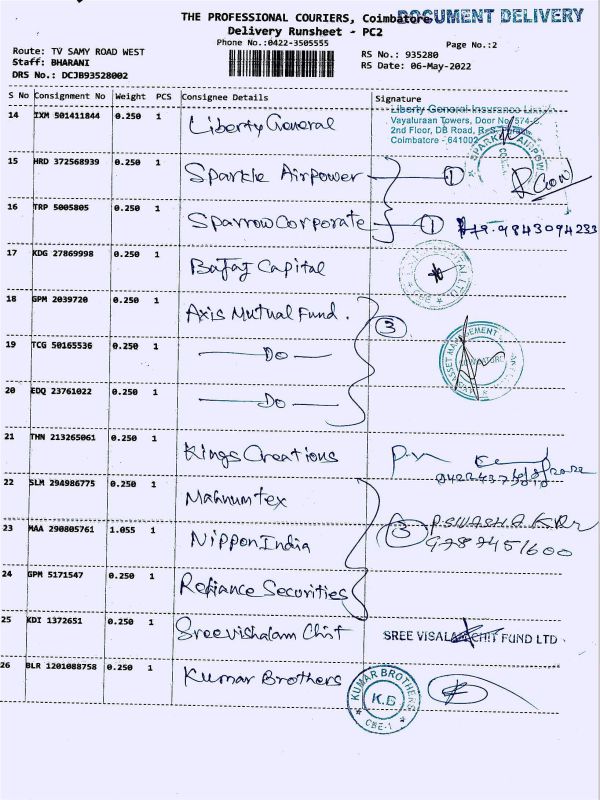 THE PROFESSIONAL COURIERS, Coimbatore
DOCUMENT DELIVERY
Delivery Runsheet - PC2
Phone No.:0422-3505555
Page No.:2
Route: TV SAMY ROAD WEST
RS No.: 935280
Staff: BHARANI
RS Date: 06-May-2022
DRS No.: DCJB93528002
S No Consignment No Weight PCS Consignee Details Signature
14 IXM 501411844 0.250 1 Liberty General
Liberty General Insurance
Vayaluraan Towers, Door No. 574-C,
2nd Floor, DB Road,
Coimbatore - 641002
15 HRD 372568939 0.250 1 Sparkle Airpower 1
SPARKLE AIRPOWER
16 TRP 5005805 0.250 1 Sparrow Corporate 1 9843094233
17 KDG 27869998 0.250 1 Bajaj Capital
CBE
18 GPM 2039720 0.250 1 Axis Mutual Fund. 3
ASSET MANAGEMENT
19 TCG 50165536 0.250 1 — Do —
20 EDQ 23761022 0.250 1 — Do —
21 THN 213265061 0.250 1 Kings Creations
22 SLM 294986775 0.250 1 Mahnumtex
23 MAA 290805761 1.055 1 Nippon India 3
24 GPM 5171547 0.250 1 Refiance Securities
25 KDI 1372651 0.250 1 Sreevishalam Chit
SREE VISALAM CHIT FUND LTD.
26 BLR 1201088758 0.250 1 Kumar Brothers
KUMAR BROTHERS
K.B
CBE-1